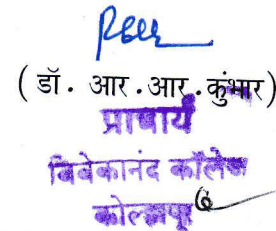 (डॉ. आर.आर.कुंभार)
प्राचार्य
विवेकानंद कॉलेज
कोल्हापूर